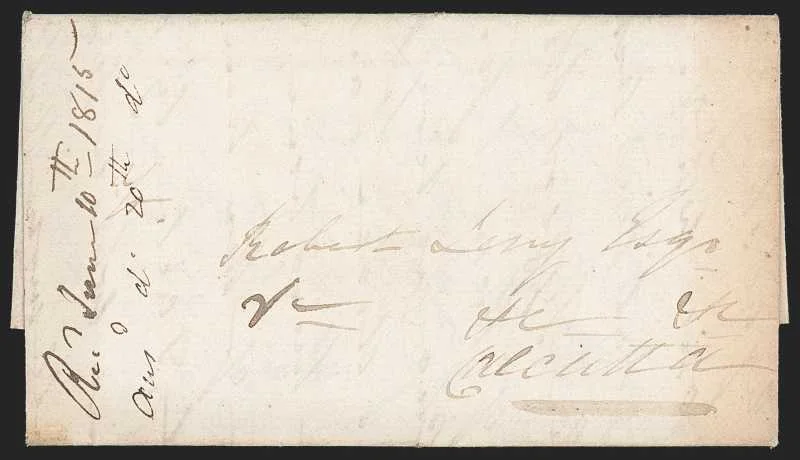 Recd June 10th 1815
Ans d do 20th do
Robert Esqr
&c &c &c
Calcutta